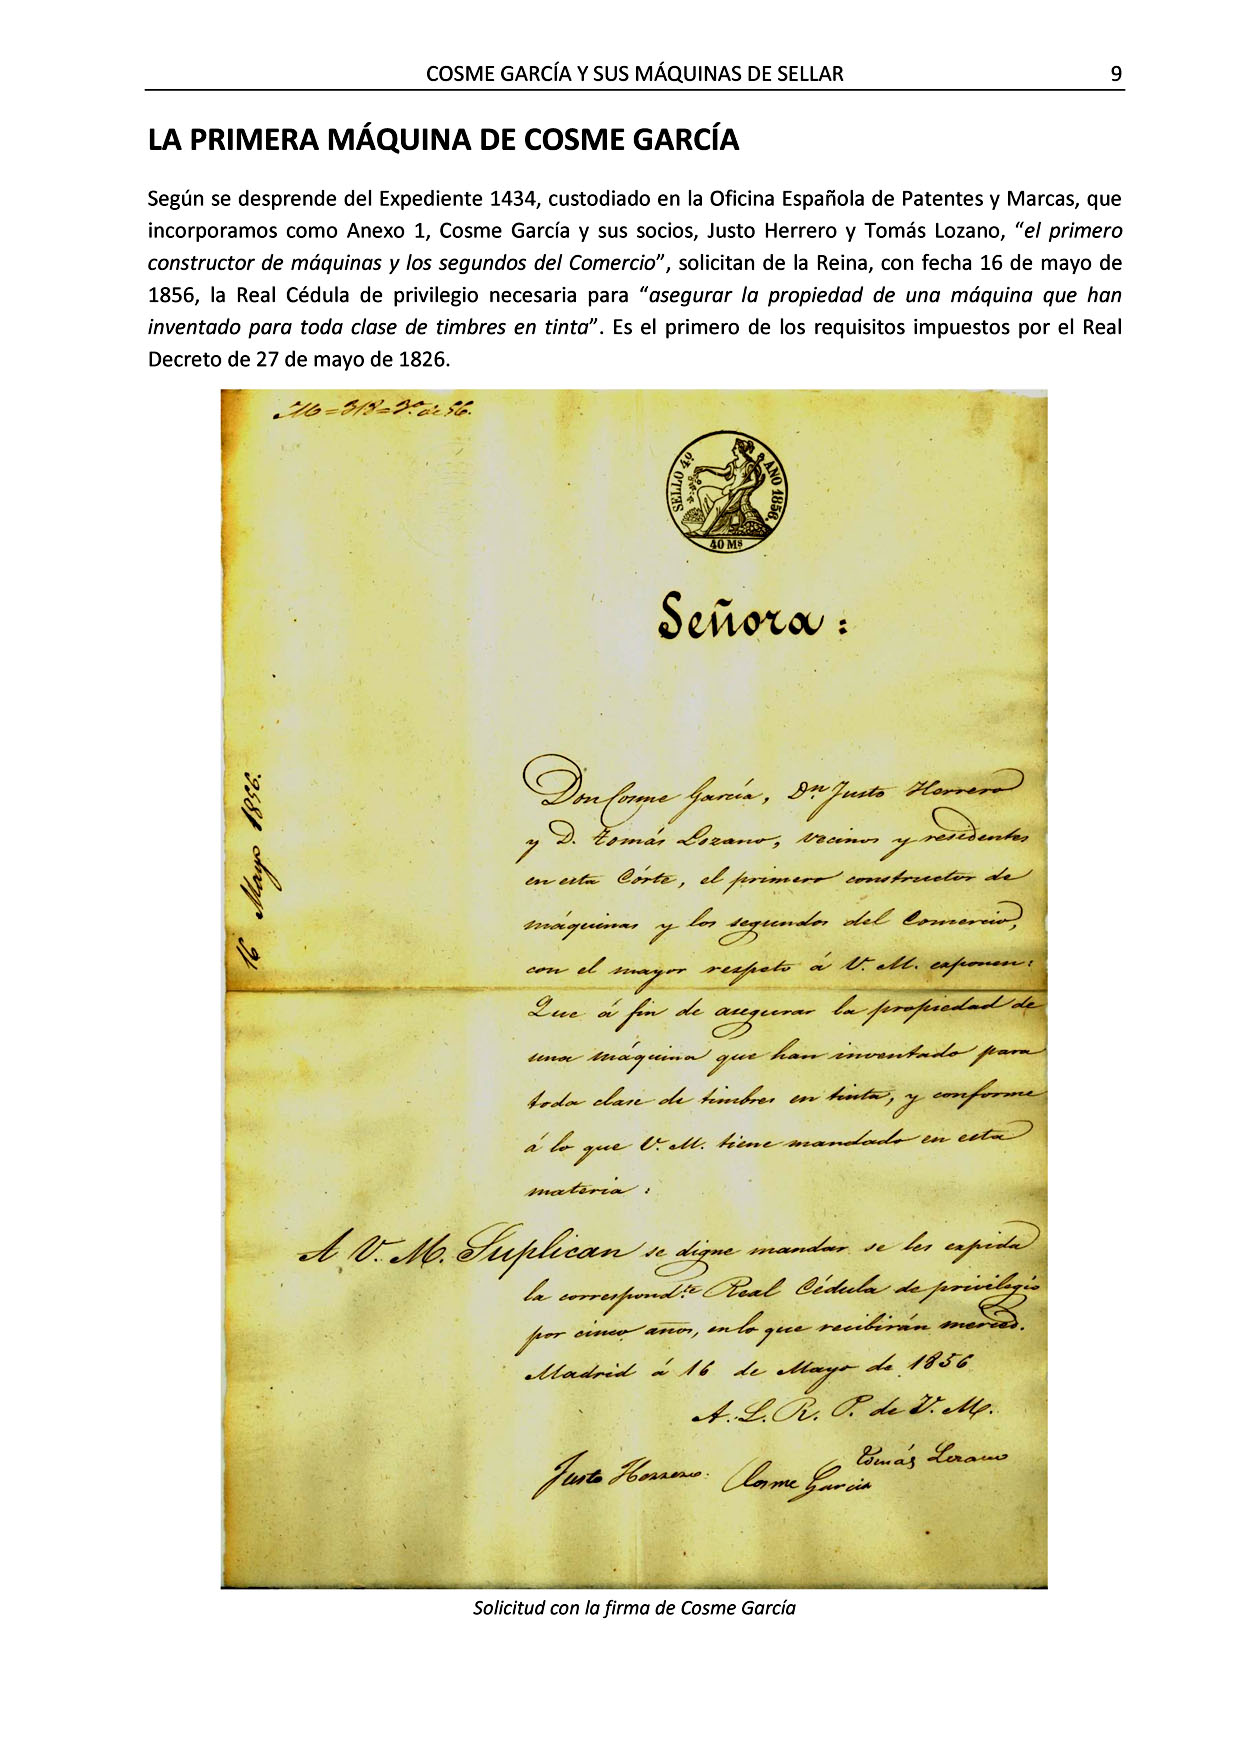 COSME GARCÍA Y SUS MÁQUINAS DE SELLAR 9
LA PRIMERA MÁQUINA DE COSME GARCÍA
Según se desprende del Expediente 1434, custodiado en la Oficina Española de Patentes y Marcas, que
incorporamos como Anexo 1, Cosme García y sus socios, Justo Herrero y Tomás Lozano, “el primero
constructor de máquinas y los segundos del Comercio”, solicitan de la Reina, con fecha 16 de mayo de
1856, la Real Cédula de privilegio necesaria para “asegurar la propiedad de una máquina que han
inventado para toda clase de timbres en tinta”. Es el primero de los requisitos impuestos por el Real
Decreto de 27 de mayo de 1826.
SELLO 4º AÑO 1856.
40 Ms
Señora:
16 Mayo 1856.
Don Cosme García, Dn. Justo Herrero
y D. Tomás Lozano, vecinos y residentes
en esta Córte, el primero constructor de
máquinas y los segundos del Comercio,
con el mayor respeto á V. M. exponen:
Que á fin de asegurar la propiedad de
una máquina que han inventado para
toda clase de timbres en tinta, y conforme
á lo que V. M. tiene mandado en esta
materia:
A V. M. Suplican se digne mandar se les expida
la correspond.te Real Cédula de privilegio
por cinco años, en lo que recibirán merced.
Madrid á 16 de Mayo de 1856
A. L. R. P. de V. M.
Tomás Lozano
Justo Herrero. Cosme García
Solicitud con la firma de Cosme García